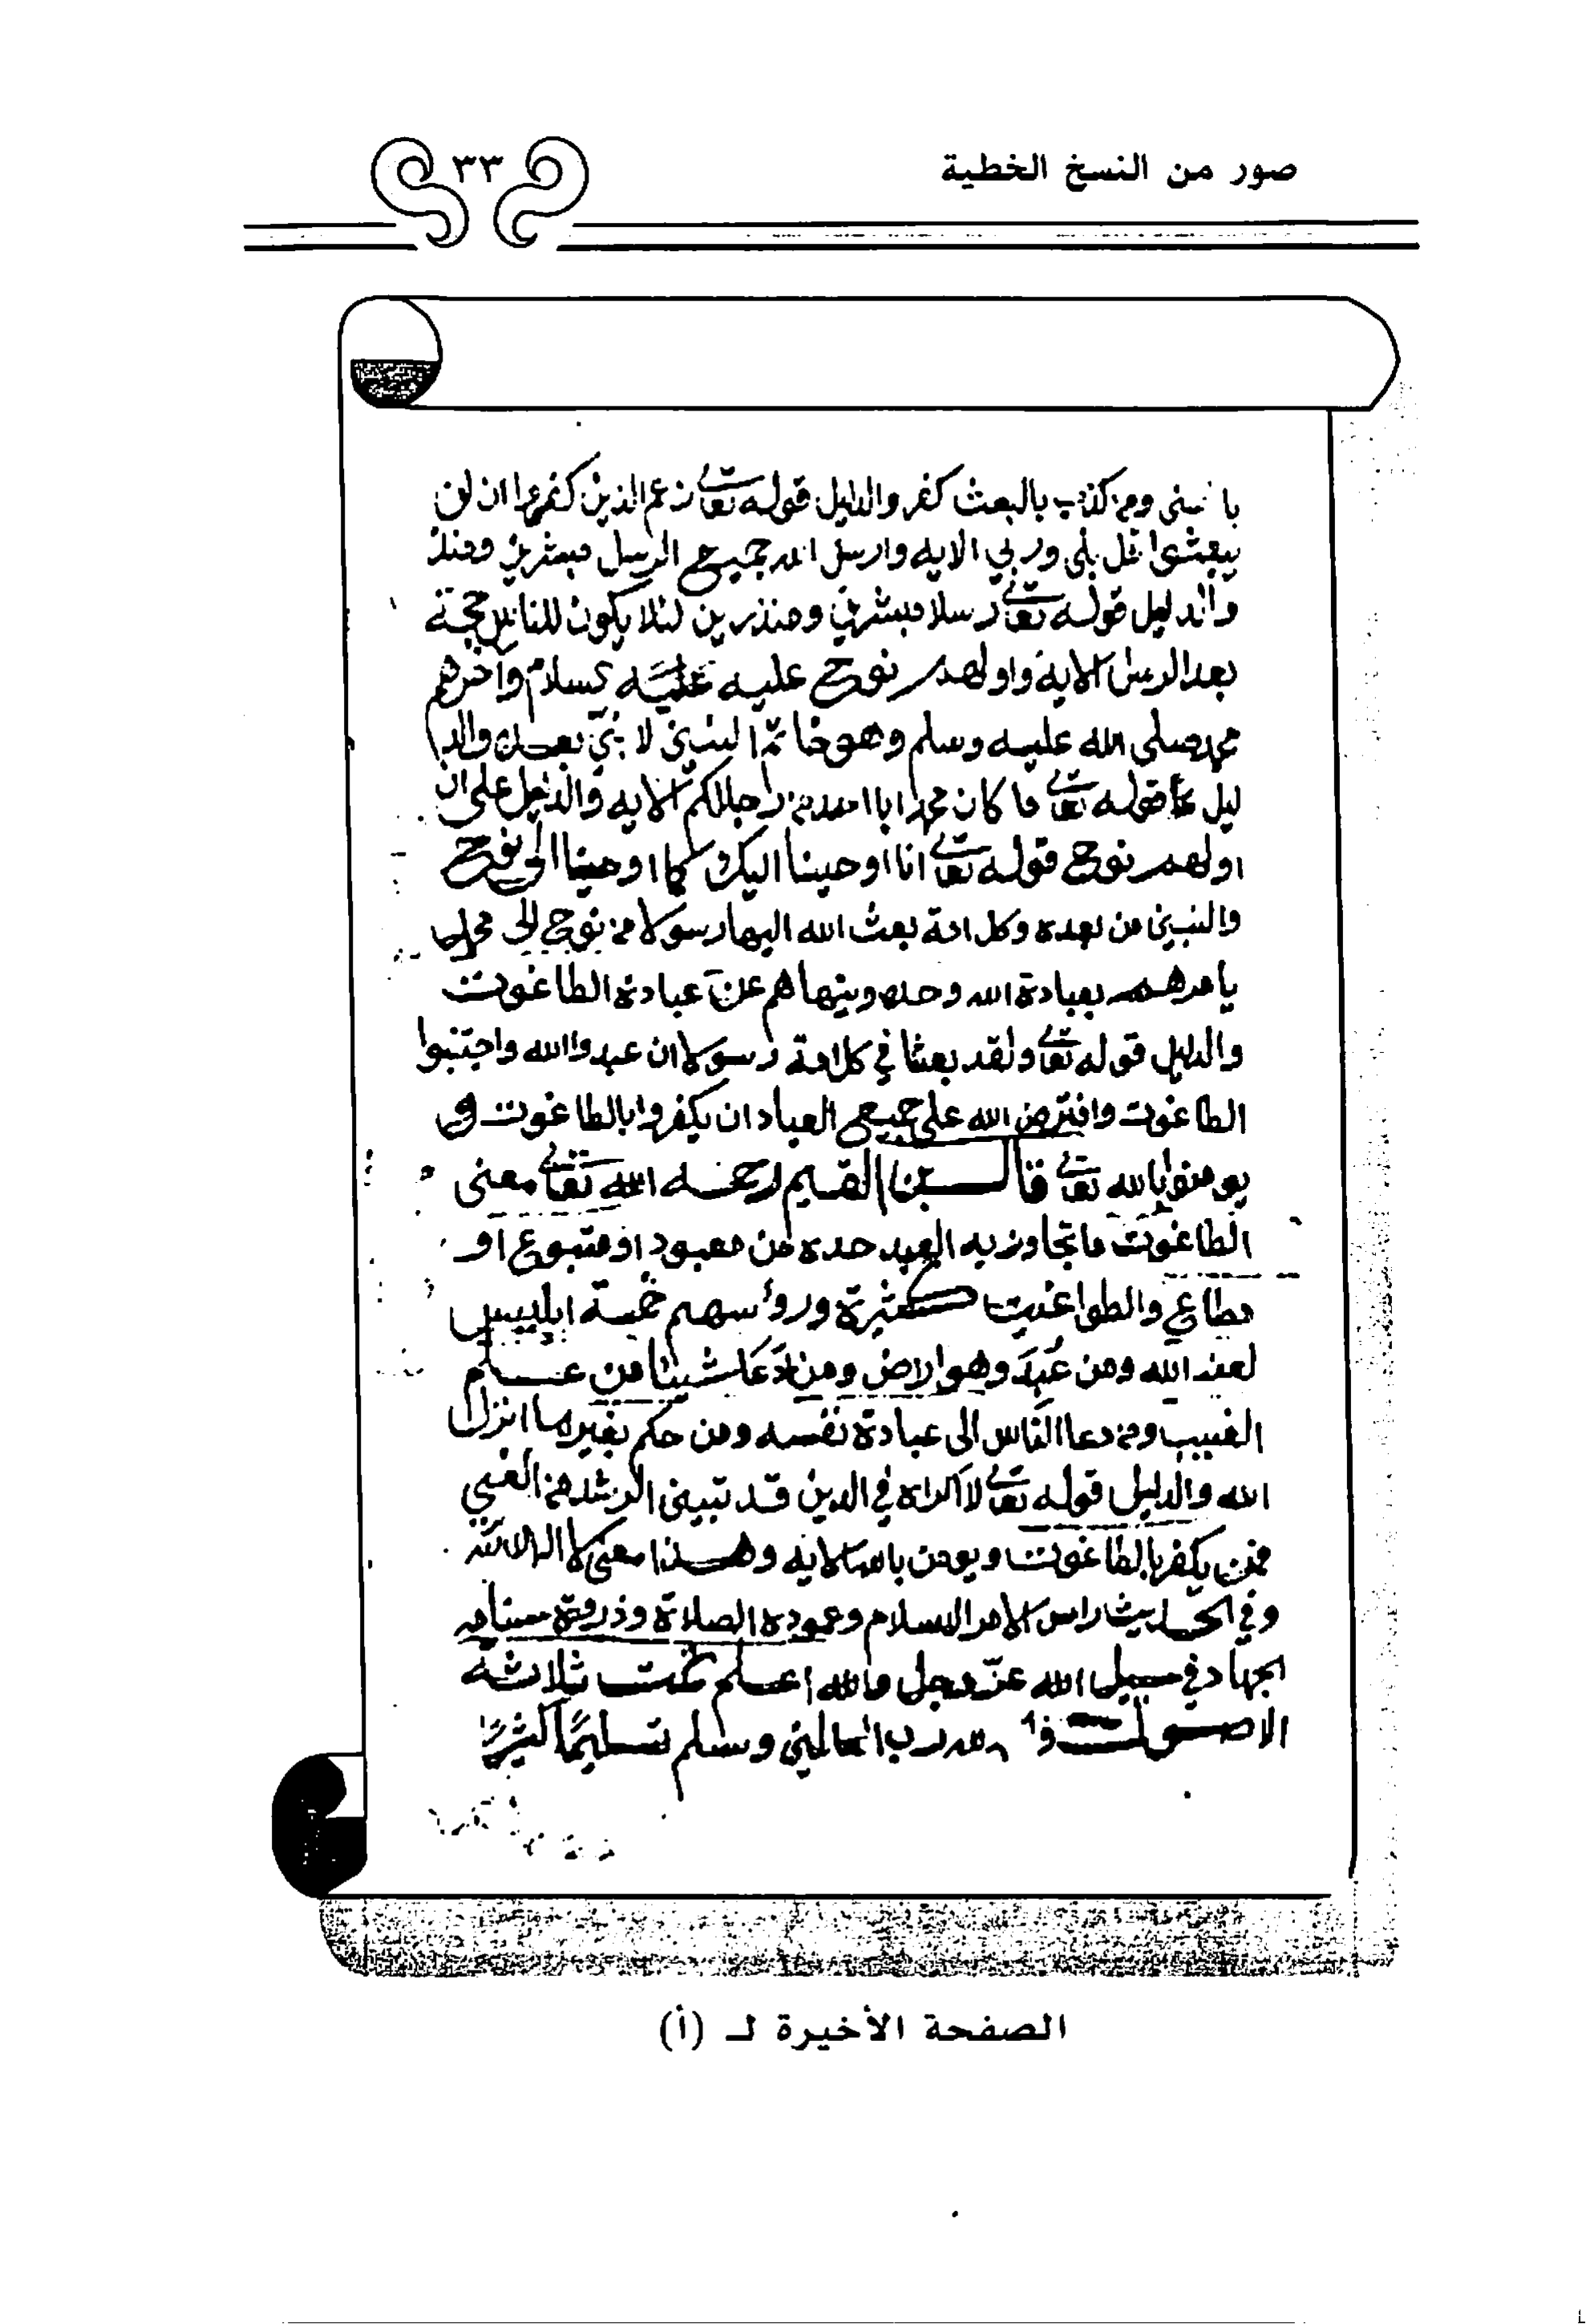 صور من النسخ الخطية
٣٣
با لحسنى ومن كذب بالبعث كفر والدليل قوله تعالى زعم الذين كفروا ان لن
يبعثوا قل بلى وربي الايه وارسل الله جميع الرسل مبشرين ومنذ
والدليل قوله تعالى رسلا مبشرين ومنذرين لئلا يكون للناس حجة
بعد الرسل الاية واولهم نوح عليه عليه السلام وآخرهم
محمد صلى الله عليه وسلم وهو خاتم النبيين لا نبي بعده والد
ليل على قوله تعالى ما كان محمد ابا احد من رجالكم الايه والدليل على ان
اولهم نوح قوله تعالى انا اوحينا اليك كما اوحينا الى نوح
والنبيين من بعده وكل امة بعث الله اليها رسولا من نوح الى محمد
يامرهم بعبادة الله وحده وينهاهم عن عبادة الطاغوت
والدليل قوله تعالى ولقد بعثنا في كل امة رسولا ان عبدوا الله واجتنبوا
الطاغوت وافترض الله على جميع العباد ان يكفروا بالطاغوت و
يومنوا بالله تعالى قال بن القيم رحمه الله تعالى معنى
الطاغوت ما تجاوز به العبد حده من معبود او متبوع او
مطاع والطواغيت كثيرة ورؤسهم خمسة ابليس
لعنه الله ومن عُبِدَ وهو راض ومن ادّعا شيئا من علم
الغيب ومن دعا الناس الى عبادة نفسه ومن حكم بغير ما انزل
الله والدليل قوله تعالى لا اكراه في الدين قد تبين الرشد من الغي
فمن يكفر بالطاغوت ويومن بالله الايه وهذا معنى لا اله الا الله
وفي الحديث راس الامر الاسلام وعموده الصلاة وذروة سنامه
الجهاد في سبيل الله عزّ وجل والله اعلم تمت ثلاثة
الاصول رب العالمين وسلم تسليمًا كثيرًا
الصفحة الأخيرة لـ (أ)